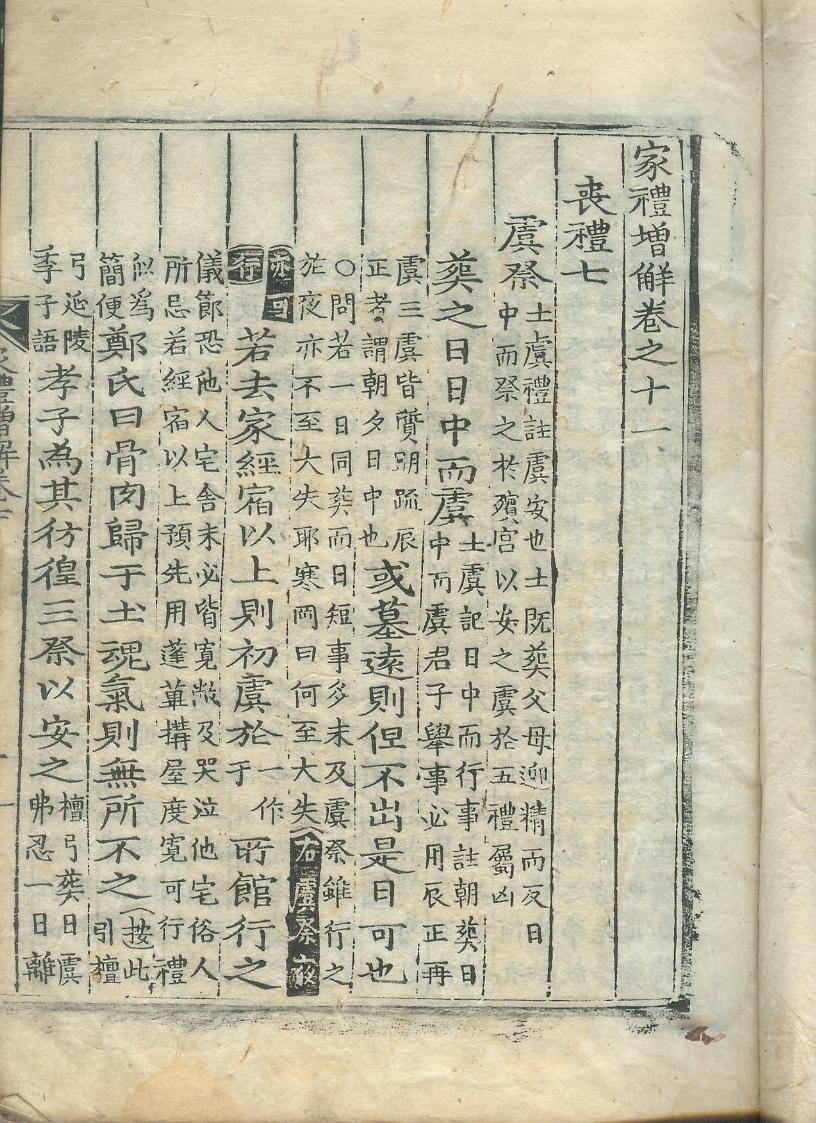 家禮增解卷之十一
喪禮七
虞祭 士虞禮註虞安也士既葬父母迎精而反日
中而祭之於殯宮以安之虞於五禮屬凶
葬之日日中而虞 士虞記日中而行事註朝葬日
中而虞君子舉事必用辰正再
虞三虞皆質明疏辰
正者謂朝夕日中也 或墓遠則但不出是日可也
○問若一日同葬而日短事多未及虞祭雖行之
於夜亦不至大失耶寒岡曰何至大失 右虞祭夜
亦可
行 若去家經宿以上則初虞於 一作
于 所館行之
儀節恐他人宅舍未必皆寬敞及哭泣他宅俗人
所忌若經宿以上預先用蓬蓽搆屋度寬可行禮
似爲
簡便 鄭氏曰骨肉歸于土魂氣則無所不之 按此
引檀
弓延陵
季子語 孝子為其彷徨三祭以安之 檀弓葬日虞
弗忍一日離